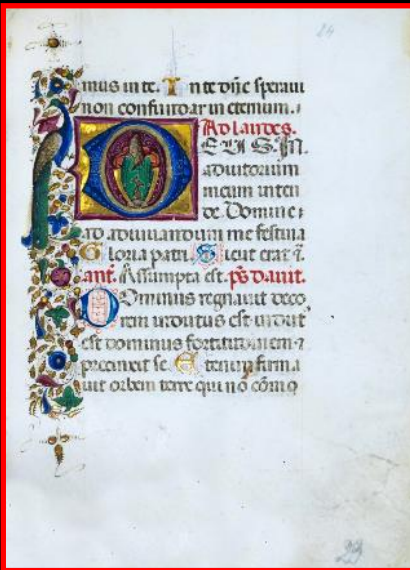 24
mus in te. In te dñe speravi
non confundar in eternum.
Ad laudes.
DEUS. In
adiutorium
meum inten
de. Domine
ad adiuvandum me festina
Gloria patri Sicut erat ⁊
ant. Assumpta est. ps̄ david.
Dominus regnavit deco
rem indutus est induit
est dominus fortitudinem ⁊
precinxit se. Etenim firma
vit orbem terre qui nō cōmo
23